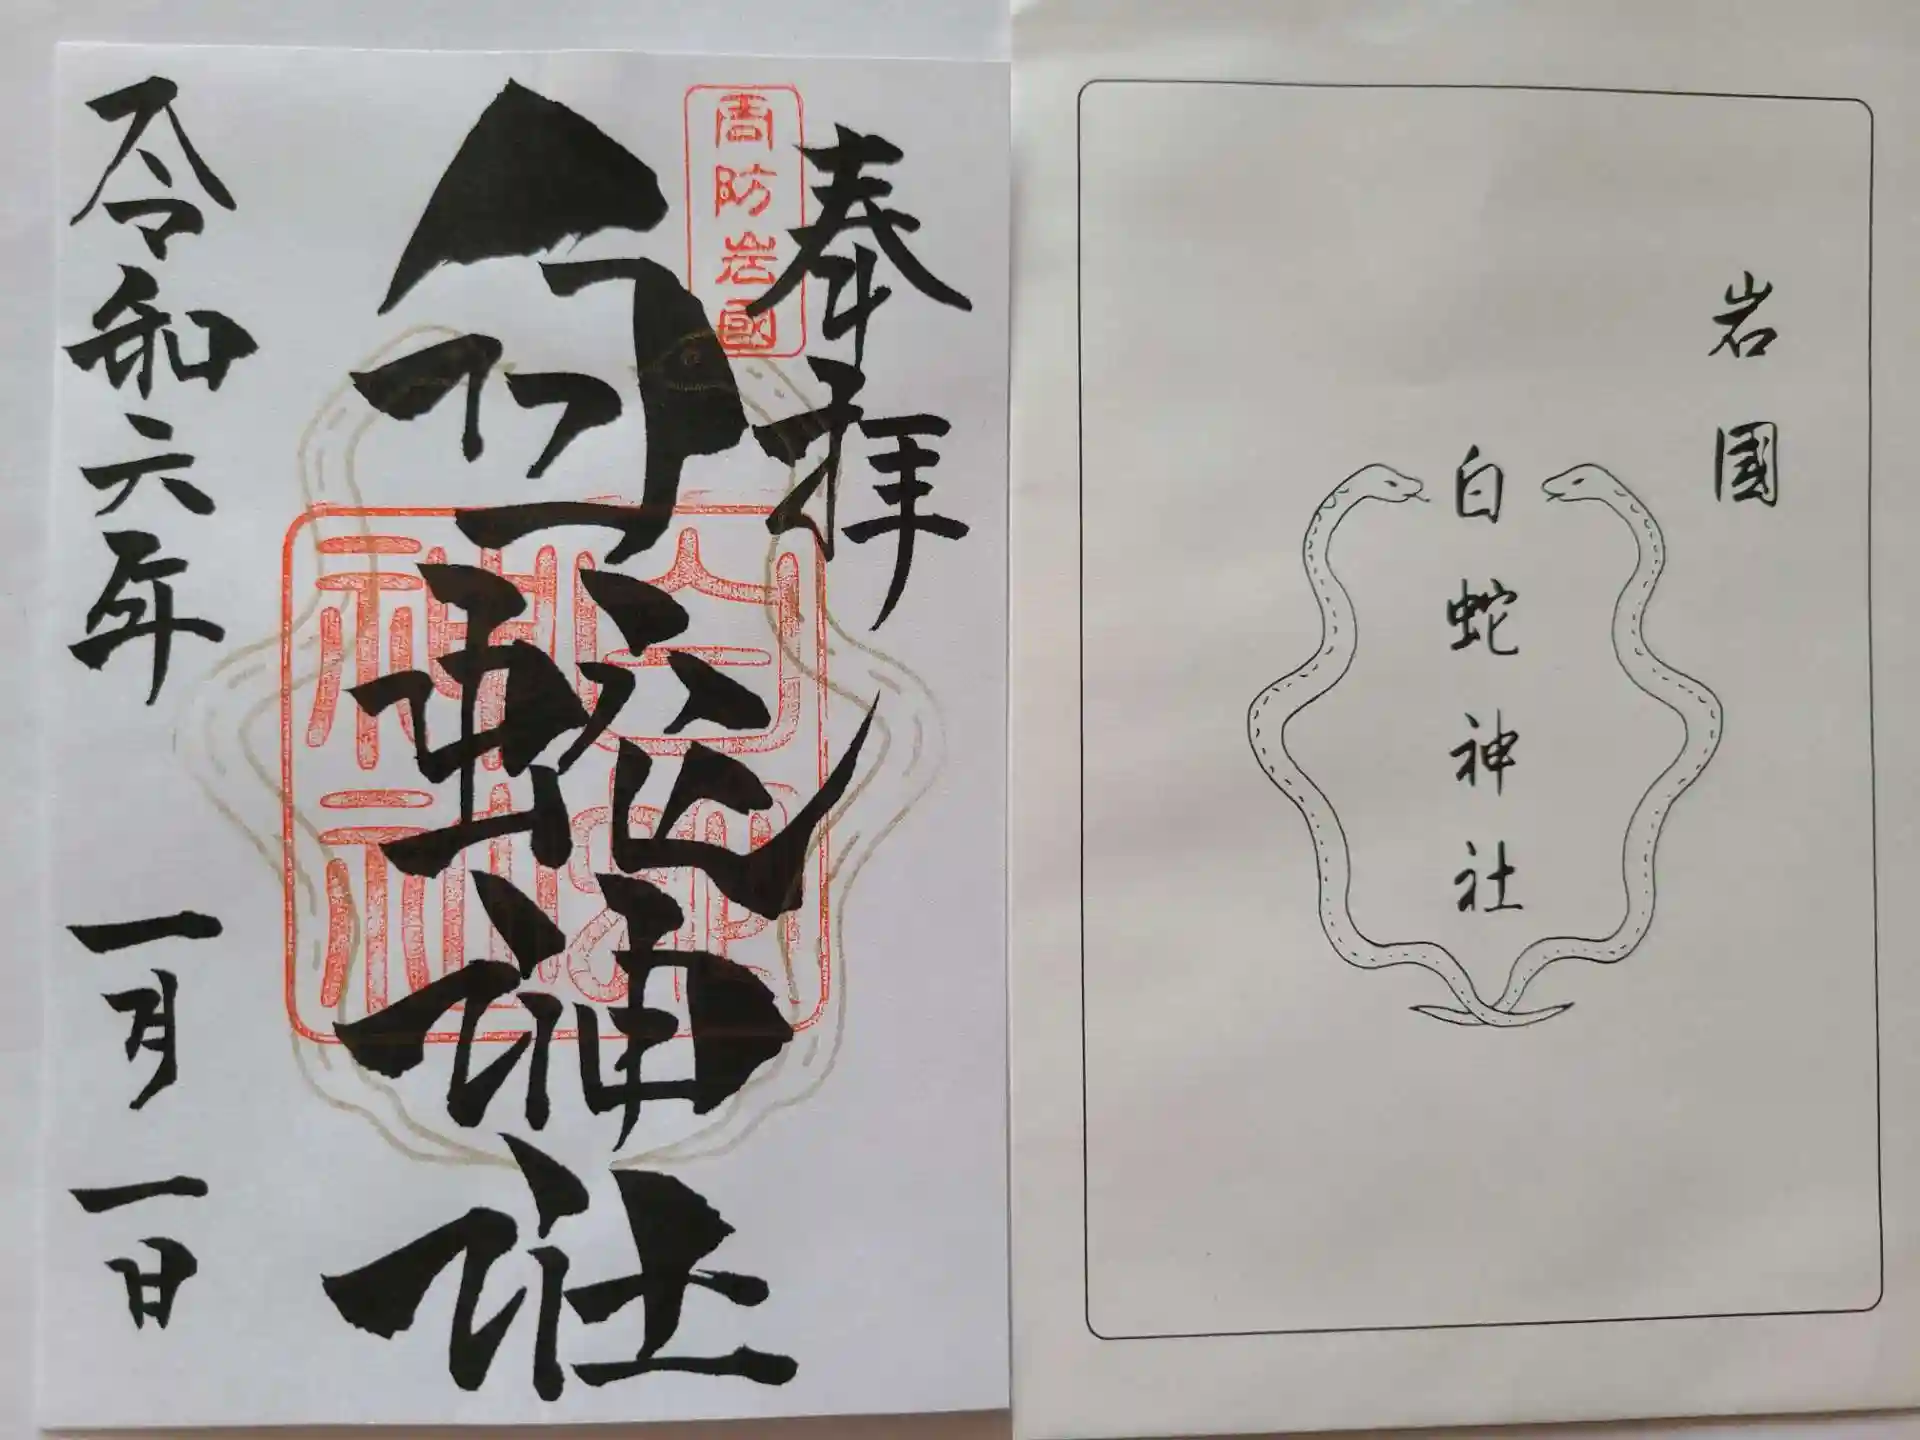 奉拝
周防岩國
白蛇神社
白蛇神社
令和六年 一月 一日
岩國
白蛇神社